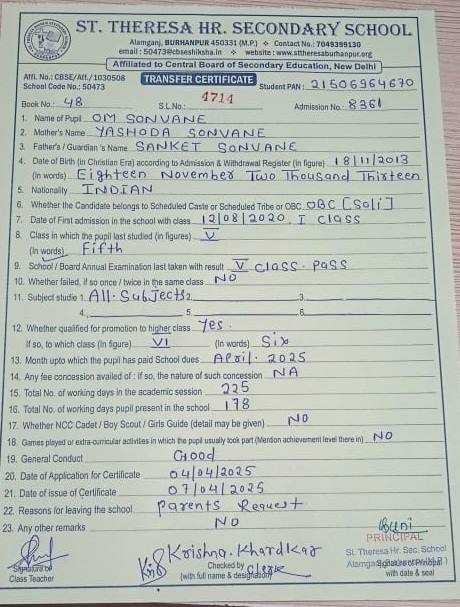 ST. THERESA HR. SECONDARY SCHOOL
Alamganj, BURHANPUR 450331 (M.P.) ❖ Contact No.: 7049399130
email : 50473@cbseshiksha.in ❖ website : www.sttheresaburhanpur.org
Affiliated to Central Board of Secondary Education, New Delhi
Affl. No.: CBSE/Aff./1030508 TRANSFER CERTIFICATE Student PAN : 21506964670
School Code No.: 50473
Book No.: 48 S.L No.: 4714 Admission No.: 8361
1. Name of Pupil OM SONVANE
2. Mother's Name YASHODA SONVANE
3. Father's / Guardian 's Name SANKET SONVANE
4. Date of Birth (in Christian Era) according to Admission & Withdrawal Register (in figure) 18/11/2013
(in words) Eighteen November Two Thousand Thirteen
5. Nationality INDIAN
6. Whether the Candidate belongs to Scheduled Caste or Scheduled Tribe or OBC OBC [Sali]
7. Date of First admission in the school with class 12/08/2020, I class
8. Class in which the pupil last studied (in figures) V
(in words) Fifth
9. School / Board Annual Examination last taken with result V class - pass
10. Whether failed, if so once / twice in the same class NO
11. Subject studie 1. All Subjects 2. 3.
4., 5. 6.
12. Whether qualified for promotion to higher class Yes.
If so, to which class (In figure) VI (In words) Six
13. Month upto which the pupil has paid School dues April - 2025
14. Any fee concession availed of : if so, the nature of such concession NA
15. Total No. of working days in the academic session 225
16. Total No. of working days pupil present in the school 178
17. Whether NCC Cadet / Boy Scout / Girls Guide (detail may be given) NO
18. Games played or extra-curricular activities in which the pupil usually took part (Mention achievement level there in) NO
19. General Conduct Good
20. Date of Application for Certificate 04/04/2025
21. Date of issue of Certificate 07/04/2025
22. Reasons for leaving the school parents Request
23. Any other remarks NO
PRINCIPAL
Krishna. Khardkar St. Theresa Hr. Sec. School
Signature of Checked by Clerk Signature of Principal
Class Teacher (with full name & designation) with date & seal